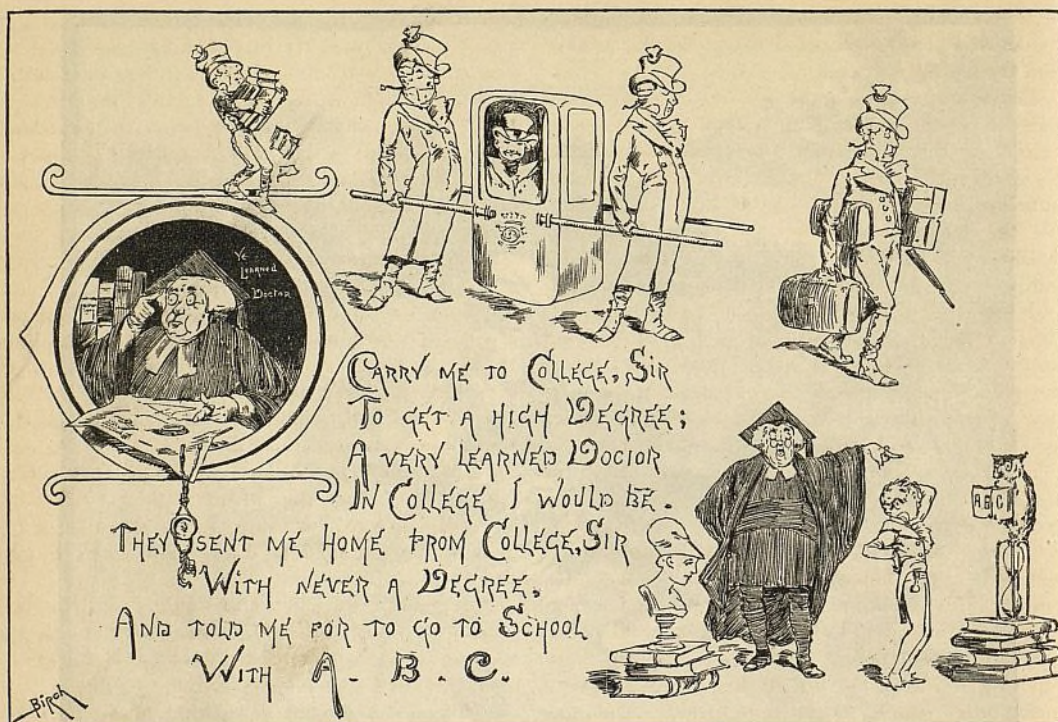 Ye
Learned
Doctor
Carry me to College, Sir
To get a high Degree;
A very learned Docior
In College I would be.
They sent me home from College, Sir
With never a Degree,
And told me for to go to School
With A. B. C.
A B C
Birch